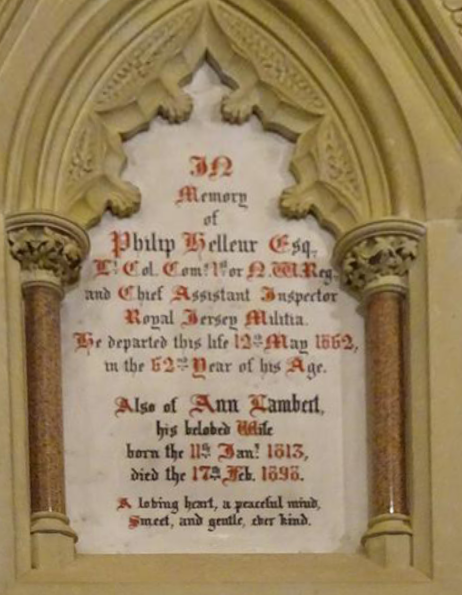 IN
Memory
of
Philip Helleur Esq.
Lt. Col. Comg. 1st or N.W. Reg.
and Chief Assistant Inspector
Royal Jersey Militia.
He departed this life 12th May 1862,
in the 62nd Year of his Age.
Also of Ann Lambert,
his beloved Wife
born the 11th Jany. 1813,
died the 17th Feb. 1898.
A loving heart, a peaceful mind,
Sweet, and gentle, ever kind.